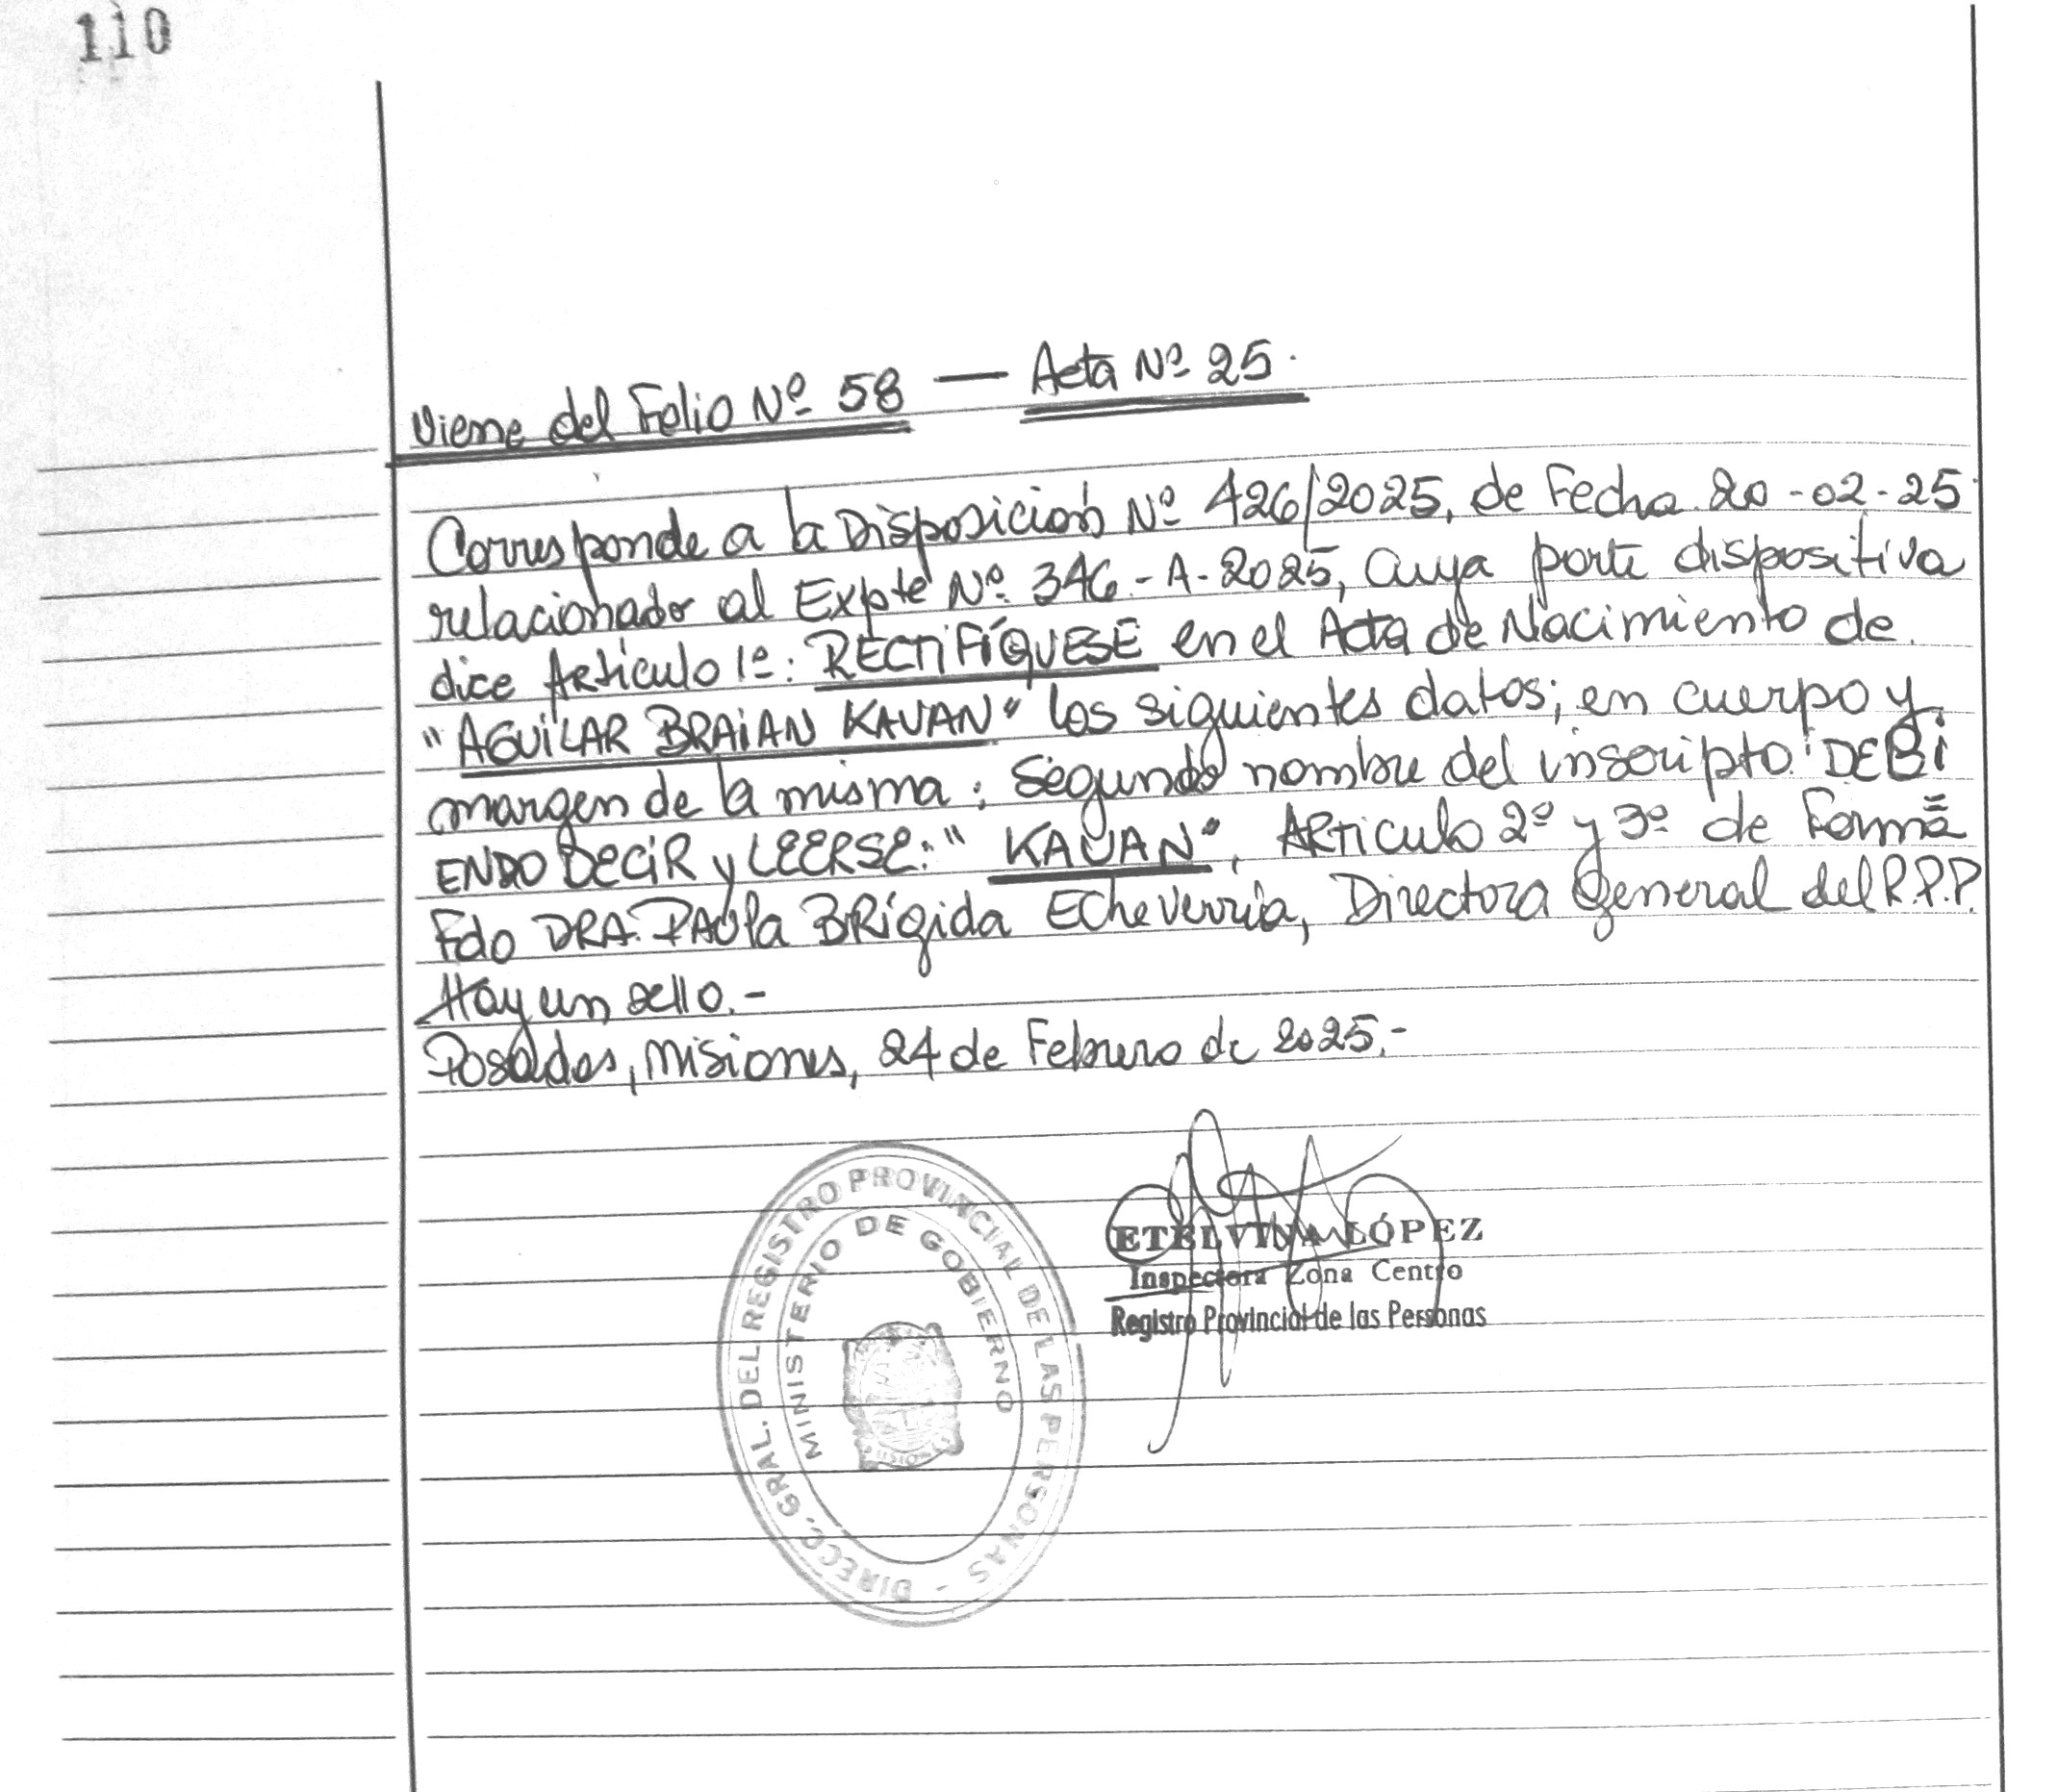 110
Viene del Folio Nº 58 — Acta Nº 25.
Corresponde a la Disposición Nº 426/2025, de Fecha 20-02-25
relacionado al Expte Nº 346-A-2025, cuya parte dispositiva
dice Artículo 1º: RECTIFÍQUESE en el Acta de Nacimiento de
"AGUILAR BRAIAN KAUAN" los siguientes datos; en cuerpo y
margen de la misma: Segundo nombre del inscripto: DEBI
ENDO DECIR y LEERSE: "KAUAN", ARTICULO 2º y 3º de Forma =
Fdo DRA. PAOla BRígida EcheVerría, Directora General del R.P.P.
Hay un sello.-
Posadas, Misiones, 24 de Febrero de 2025.-
DIRECC. GRAL. DEL REGISTRO PROVINCIAL DE LAS PERSONAS -
MINISTERIO DE GOBIERNO
ETELVINA LÓPEZ
Inspectora Zona Centro
Registro Provincial de las Personas